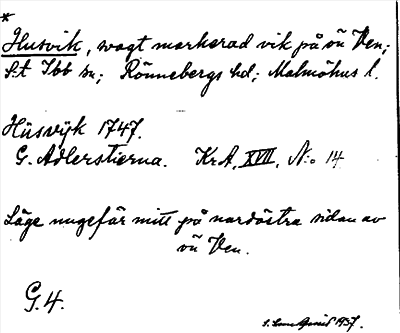 *
Husvik, svagt markerad vik på ön Ven;
S:t Ibb sn; Rönnebergs hd; Malmöhus l.
Hüsvijk 1747.
G. Adlerstierna. KrA, XVII, N:o 14
Läge ungefär mitt på nordöstra sidan av
ön Ven.
G.4.
1937.